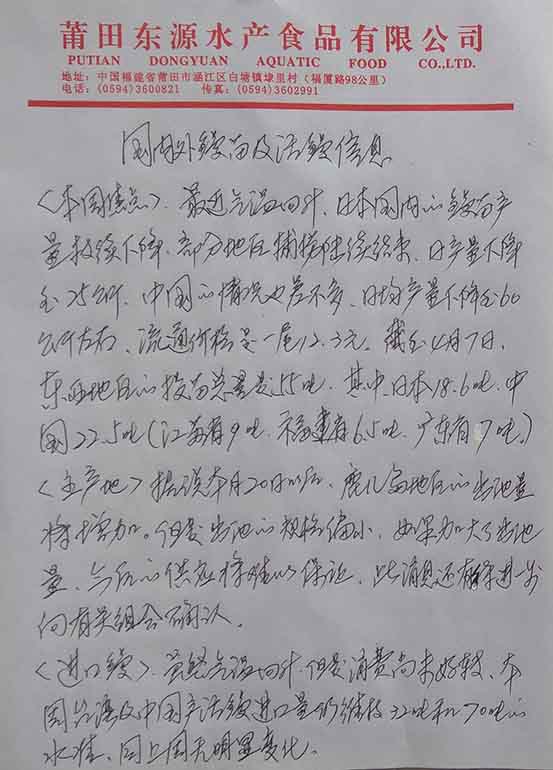 莆田东源水产食品有限公司
PUTIAN DONGYUAN AQUATIC FOOD CO.,LTD.
地址：中国福建省莆田市涵江区白塘镇埭里村（福厦路98公里）
电话：(0594)3600821 传真：(0594)3602991
国内外鳗苗及活鳗信息
〈本周焦点〉、最近气温回升、日本国内的鳗苗产
量持续下降、部分地区捕捞陆续结束、日产量下降
至25公斤、中国的情况也差不多、日均产量下降至60
公斤左右、流通价格是一尾12.3元。截至4月7日、
东西地区的投苗总量是55吨、其中、日本18.6吨、中
国22.5吨（江苏有9吨、福建有6.5吨、广东有7吨。）
〈主产地〉据说本月20日以后、鹿儿岛地区的出池量
将增加。但是出池的规格偏小、如果加大了出池
量、今后的供应将难以保证、此消息还有待进一步
向有关组合确认。
〈进口鳗〉、虽然气温回升、但是消费尚未好转、本
周台湾及中国产活鳗进口量仍维持32吨和70吨的
水准、同上周无明显变化。